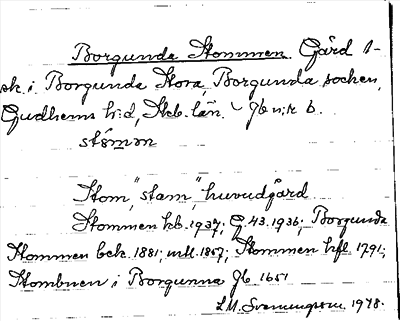 Borgunda Stommen. Gård 1-
sk. i Borgunda Stora, Borgunda socken,
Gudhems h:d, Skb. län. Jb n:r 6.
stômən
Stom, "stam", huvudgård.
Stommen kb. 1937; G 43. 1936; Borgunda
Stommen beh. 1881; 1857; Stommen hfl. 1791;
Stombnen i Borgunna Jb 1651
1978.